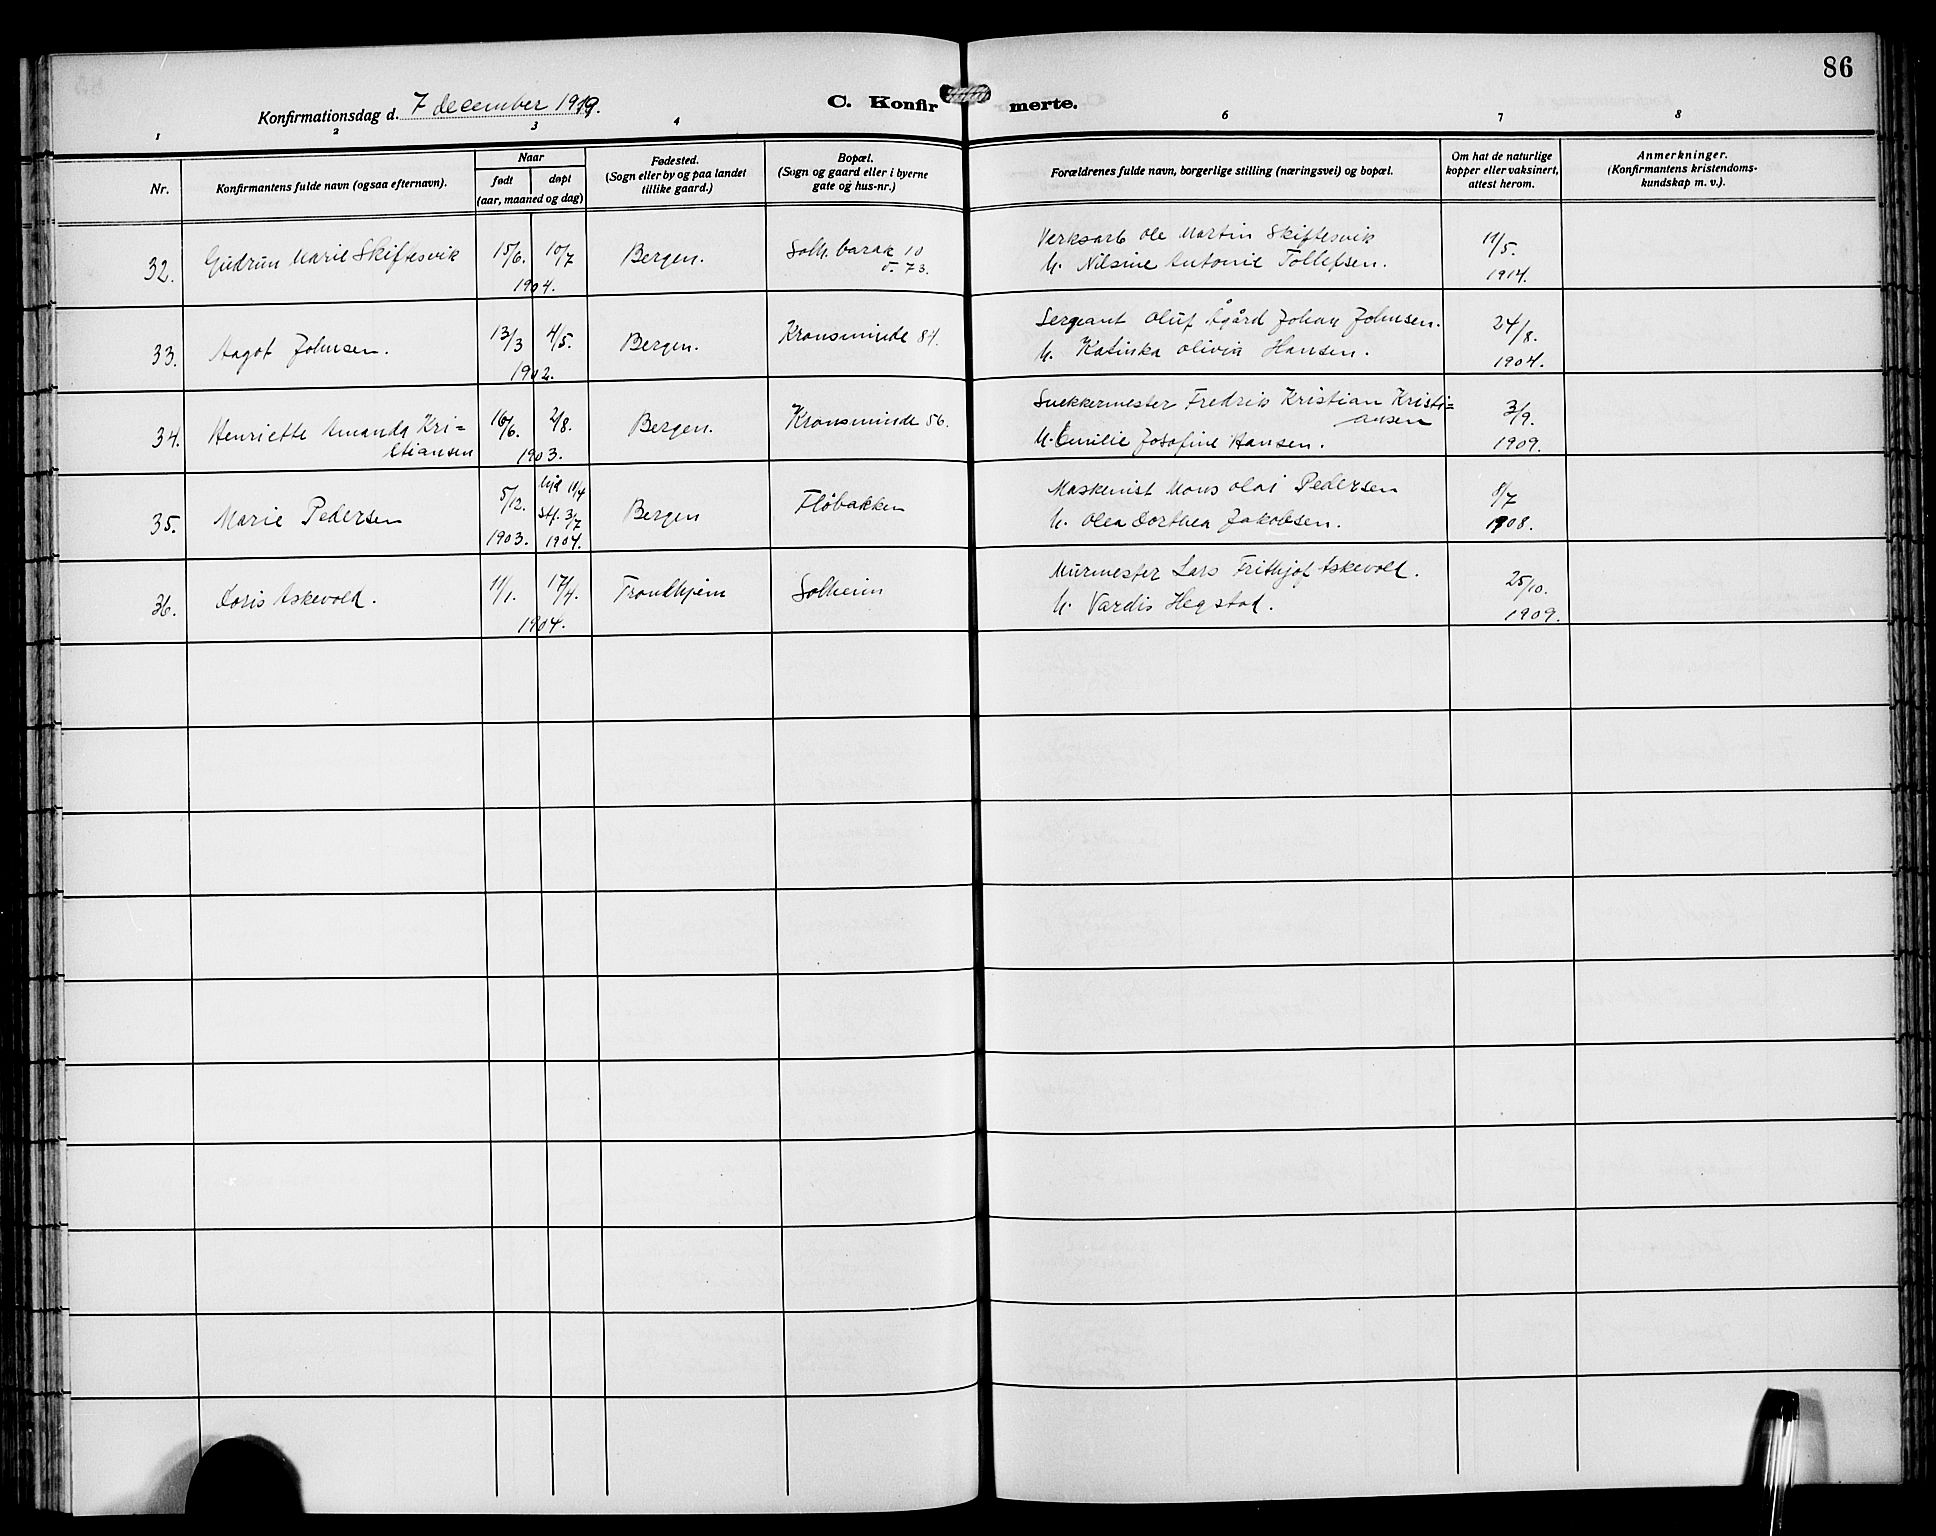 86
Konfirmationsdag d. 7 december 1919.
C. Konfirmerte.
1 2 3 4 6 7 8
Nr.
Konfirmantens fulde navn (ogsaa efternavn).
Naar
født døpt
(aar, maaned og dag)
Fødested.
(Sogn eller by og paa landet
tillike gaard.)
Bopæl.
(Sogn og gaard eller i byerne
gate og hus-nr.)
Forældrenes fulde navn, borgerlige stilling (næringsvei) og bopæl.
Om hat de naturlige
kopper eller vaksinert,
attest herom.
Anmerkninger.
(Konfirmantens kristendoms-
kundskap m. v.).
32. Gudrun Marie Skiftesvik 15/6. 10/7 1904. Bergen. Solh. barak 10
v. 73.
Verksarb Ole Martin Skiftesvik
M. Nilsine Antonie Tollefsen.
11/5.
1914.
33. Aagot Johnsen. 13/3 4/5. 1902. Bergen. Kronsminde 84.
Sergeant Oluf Ågård Johan Johnsen.
M. Katinka Olivia Hansen.
24/8.
1904.
34. Henriette Amanda Kri=
stiansen
16/6. 2/8. 1903. Bergen. Kronsminde 56.
Snekkermester Fredrik Kristian Kristi=
ansen
M. Emilie Josofine Hansen.
3/9.
1909.
35. Marie Pedersen 5/12. 1903. hjd 11/4 stf. 3/7 1904. Bergen Fløbakken
Maskenist Mons Olai Pedersen
M. Olea Dorthea Jakobsen.
8/7
1908.
36. Doris Askevold. 11/1. 17/4. 1904. Trondhjem Solheim
Murmester Lars Frithjof Askevold.
M. Vardis Hegstad.
25/10.
1909.